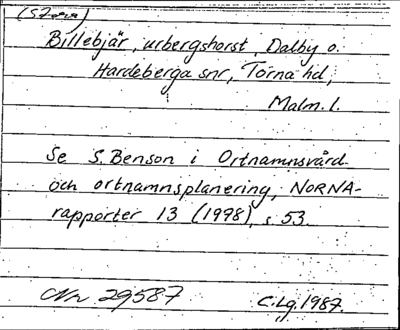 (Stora)
Billebjär, urbergshorst, Dalby o.
Hardeberga snr, Torna hd,
Malm. l.
Se S. Benson i Ortnamnsvård
och ortnamnsplanering, NORNA-
rapporter 13 (1998), s. 53.
Nr 29587
C.Lg. 1987.